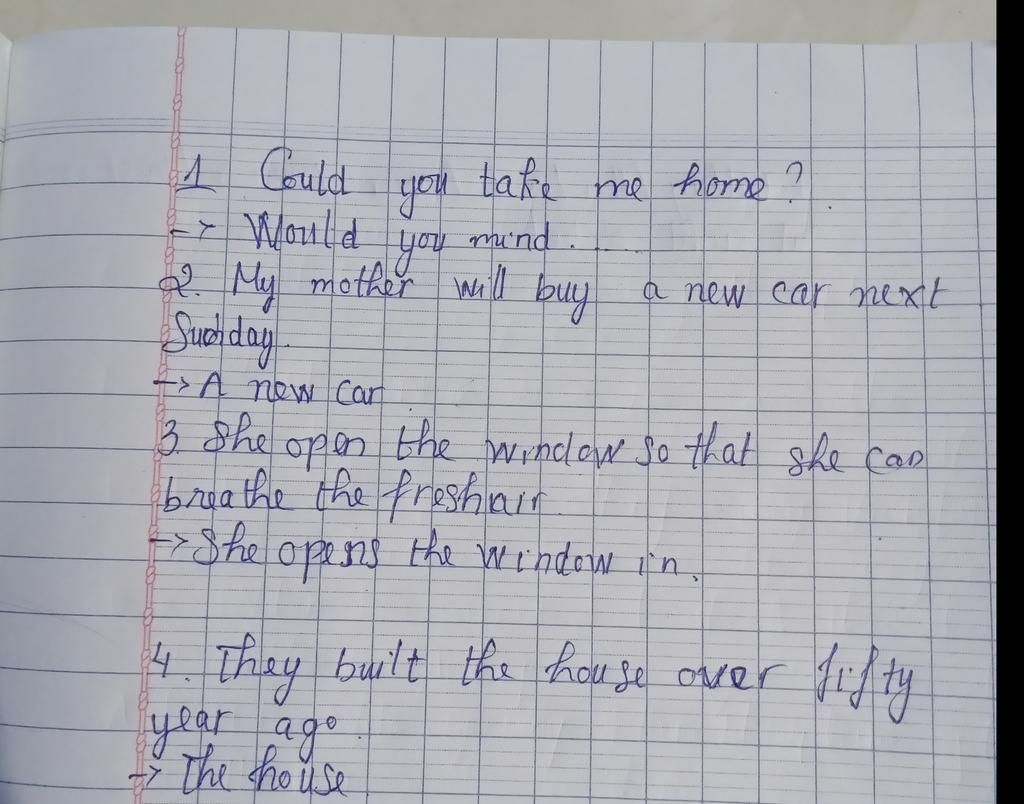 1 Could you take me home?
-> Would you mind.....
2. My mother will buy a new car next
Sunday.
-> A new car
3. She open the window so that she can
breathe the fresh air
-> She opens the window in.
4. They built the house over fifty
year ago.
-> The house